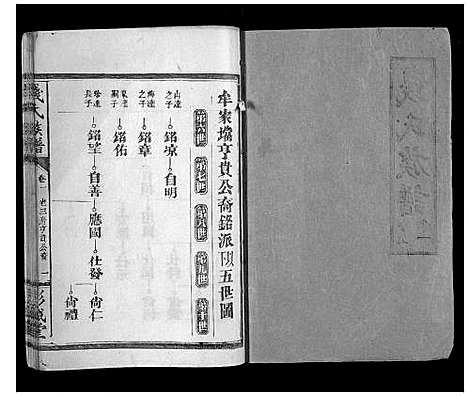 牟家壋亨貴公裔銘派下以五世圖
第六世
第七世
第八世
第九世
第十世
山達之子
銘凉
自明
之子
銘章
嗣子
銘佑
長子
銘望
自善
應國
仕發
尙仁
尙禮
錢氏族譜
卷一
彭城堂
錢氏族譜
卷一